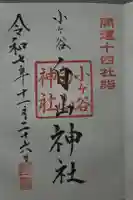 開運十四社詣
小ヶ谷
白山神社
小ヶ谷
神社
令和七年十一月二六日